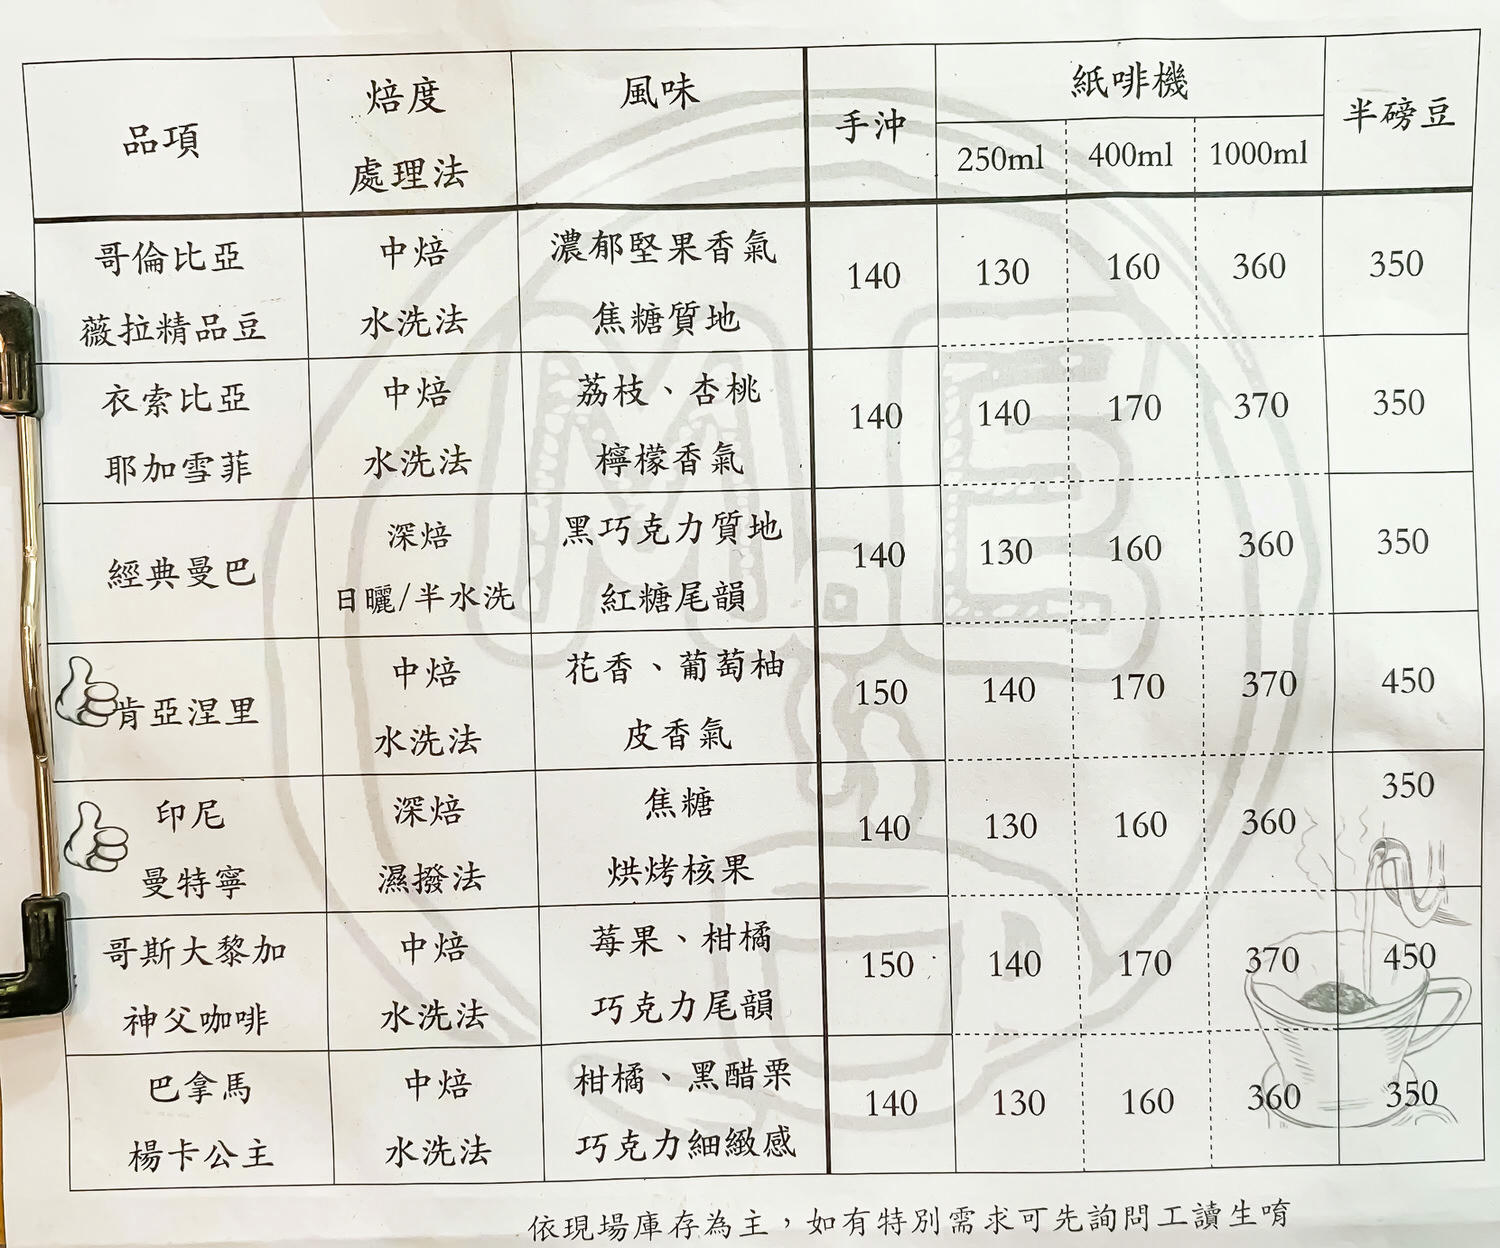 品項 焙度 風味 手沖 紙啡機 半磅豆
處理法 250ml 400ml 1000ml
哥倫比亞 中焙 濃郁堅果香氣 140 130 160 360 350
薇拉精品豆 水洗法 焦糖質地
衣索比亞 中焙 荔枝、杏桃 140 140 170 370 350
耶加雪菲 水洗法 檸檬香氣
經典曼巴 深焙 黑巧克力質地 140 130 160 360 350
日曬/半水洗 紅糖尾韻
肯亞涅里 中焙 花香、葡萄柚 150 140 170 370 450
水洗法 皮香氣
印尼 深焙 焦糖 140 130 160 360 350
曼特寧 濕撥法 烘烤核果
哥斯大黎加 中焙 莓果、柑橘 150 140 170 370 450
神父咖啡 水洗法 巧克力尾韻
巴拿馬 中焙 柑橘、黑醋栗 140 130 160 360 350
楊卡公主 水洗法 巧克力細緻感
依現場庫存為主，如有特別需求可先詢問工讀生唷
M.E